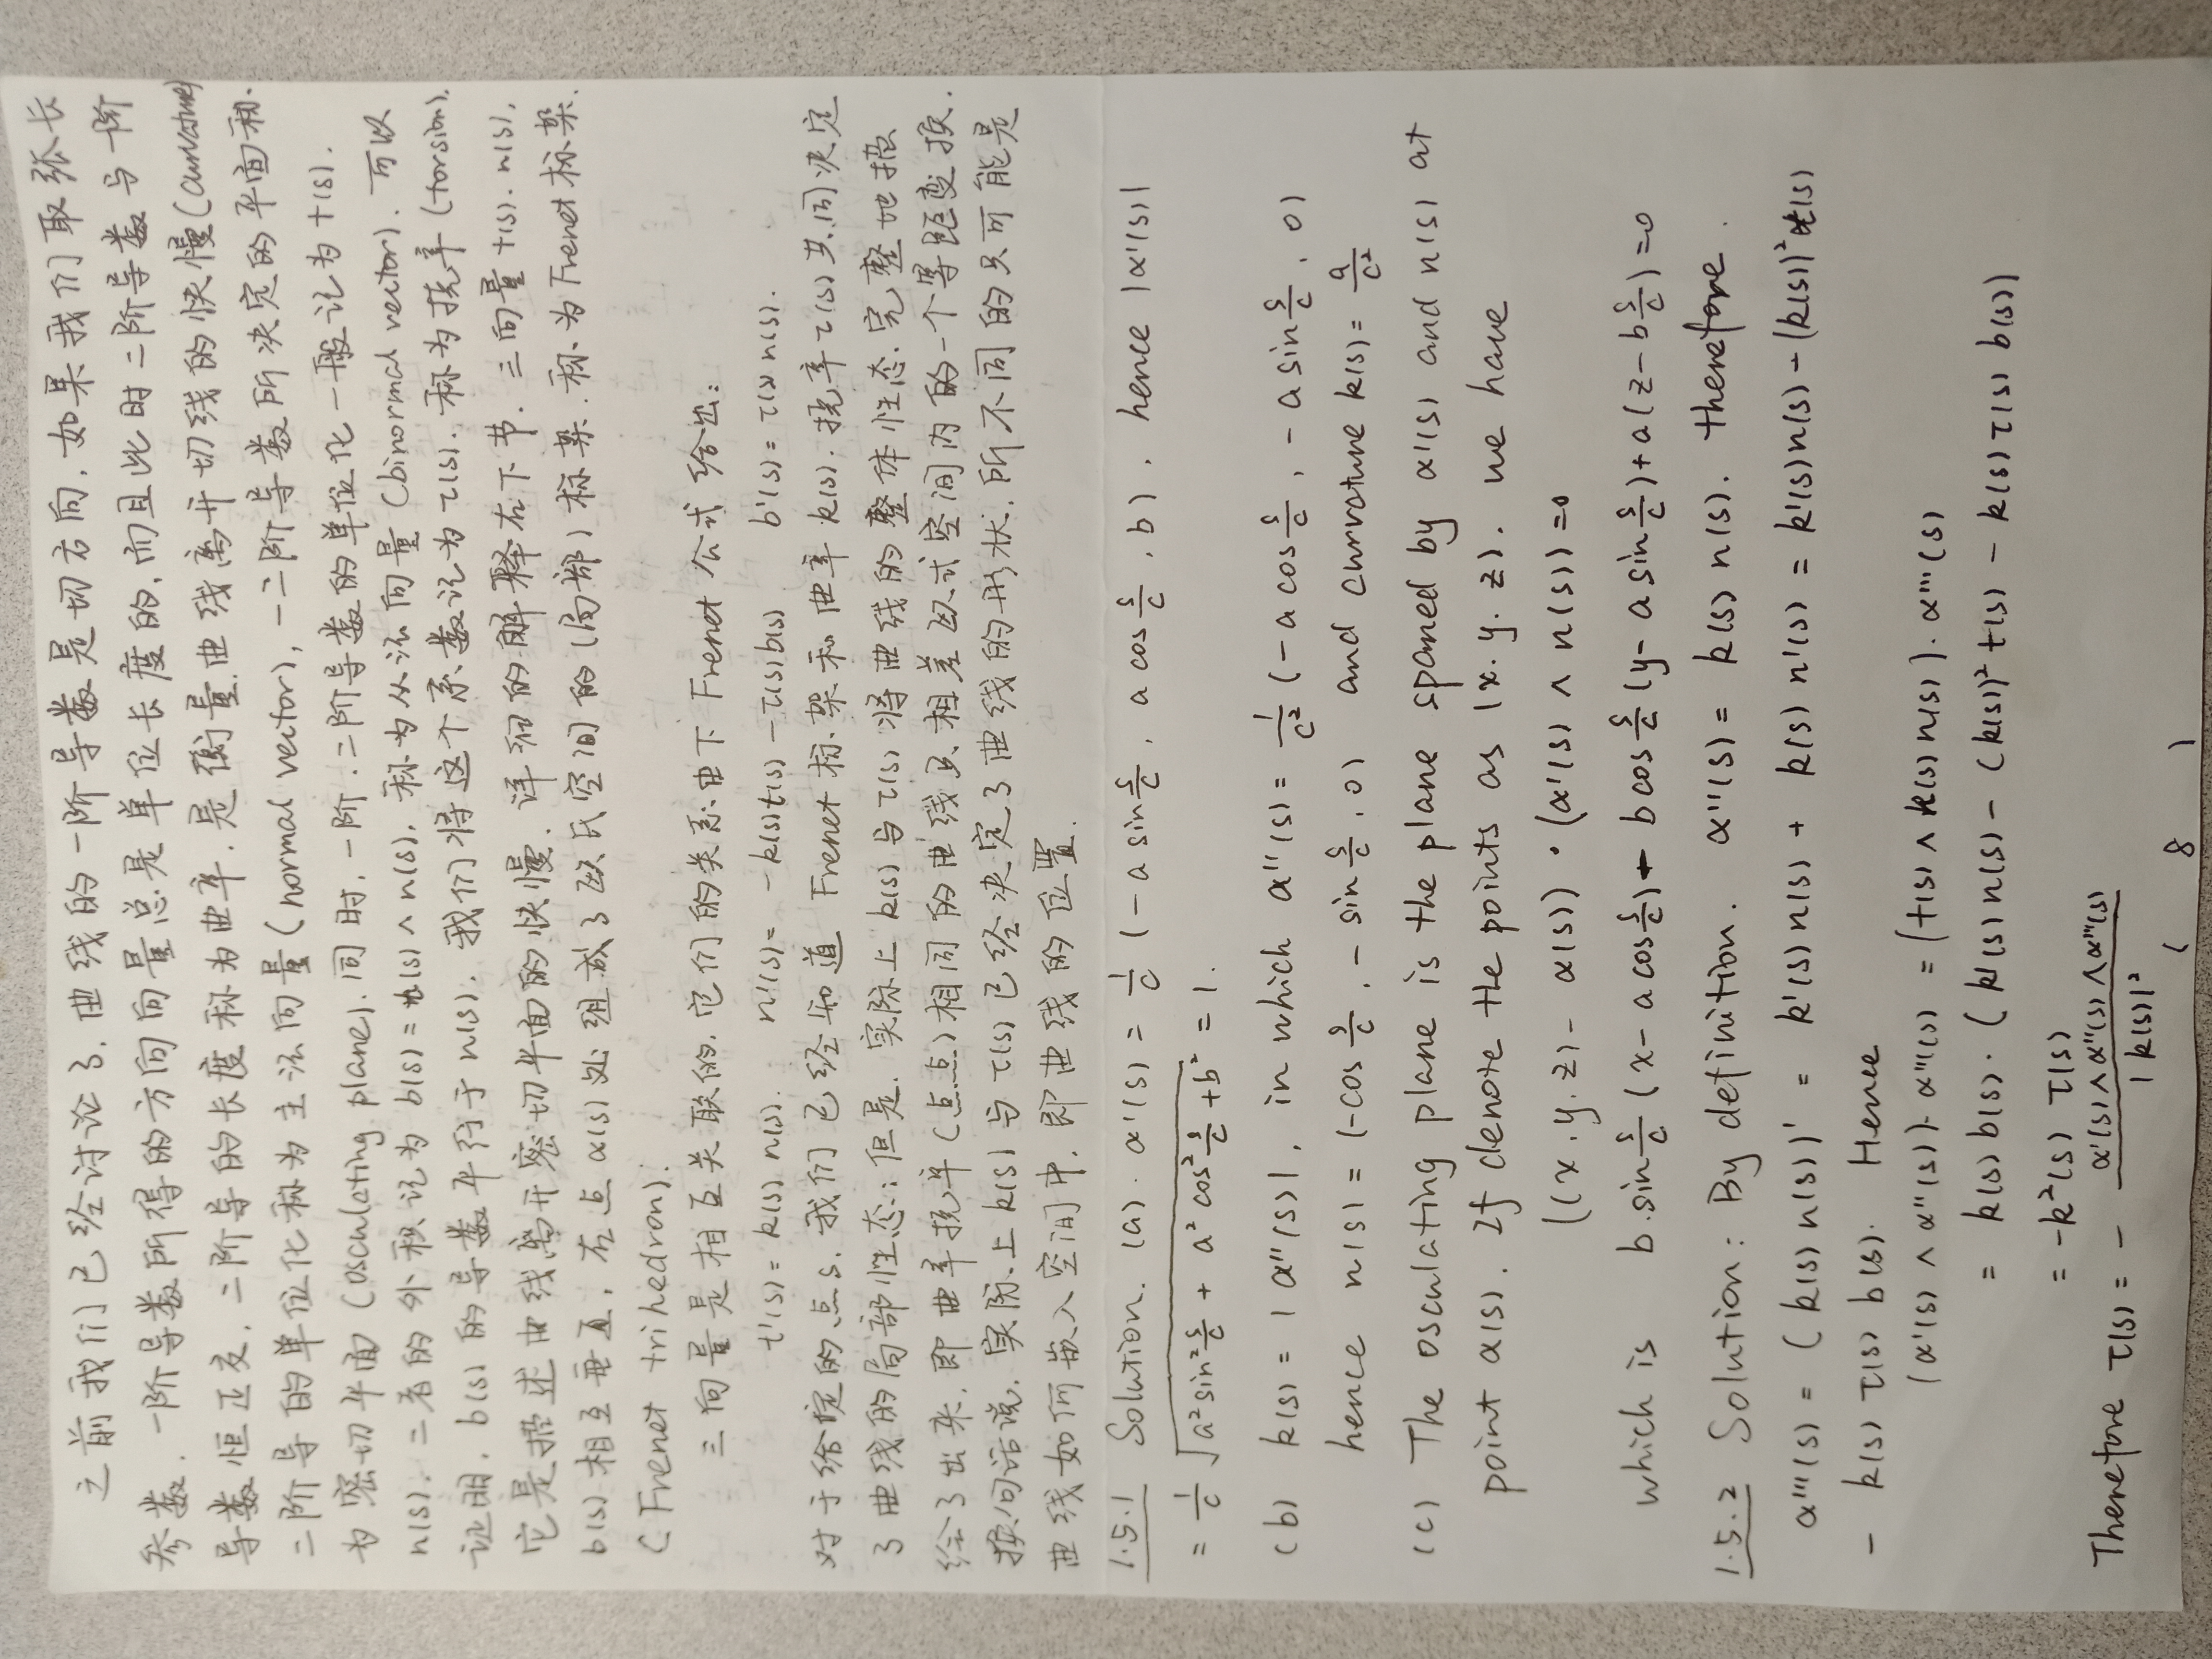 之前我们已经讨论了,曲线的一阶导数是切方向,如果我们取弧长
参数,一阶导数所得的方向向量总是单位长度的,而且此时二阶导数与一阶
导数恒正交,二阶导的长度称为曲率,是衡量曲线离开切线的快慢(curvature)
二阶导的单位化称为主法向量(normal vector),一二阶导数所决定的平面称
为密切平面(osculating plane).同时,一阶.二阶导数的单位化一般记为t(s).
n(s).二者的外积记为b(s)=t(s)∧n(s),称为从法向量(binormal vector).可以
证明,b(s)的导数平行于n(s),我们将这个系数记为τ(s).称为挠率(torsion).
它是描述曲线离开密切平面的快慢.详细的解释在下节.三向量t(s).n(s),
b(s)相互垂直,在点α(s)处组成了欧氏空间的(局部)标架.称为Frenet标架
(Frenet trihedron).
三向量是相互关联的,它们的关系由下Frenet公式给出:
t'(s)=k(s)n(s). n'(s)=-k(s)t(s)-τ(s)b(s). b'(s)=τ(s)n(s).
对于给定的点s,我们已经知道 Frenet标架和曲率k(s).挠率τ(s)共同决定
了曲线的局部性态;但是,实际上k(s)与τ(s)将曲线的整体性态.完整地描
绘了出来,即曲率挠率(点点)相同的曲线只相差欧式空间内的一个等距变换.
换句话说,实际上k(s)与τ(s)已经决定了曲线的形状.所不同的只可能是
曲线如何嵌入空间中,即曲线的位置.
1.5.1 Solution. (a). α'(s)=1/c(-a sin s/c, a cos s/c, b), hence |α'(s)|
=1/c √(a² sin² s/c + a² cos² s/c + b²) = 1.
(b) k(s)=|α''(s)|, in which α''(s)=1/c²(-a cos s/c, -a sin s/c, 0)
hence n(s)=(-cos s/c, -sin s/c, 0) and curvature k(s)=a/c²
(c) The osculating plane is the plane spanned by α'(s) and n(s) at
point α(s). If denote the points as (x.y.z). we have
((x.y.z)-α(s))·(α'(s)∧n(s))=0
which is b sin s/c (x-a cos s/c)+ b cos s/c (y-a sin s/c)+a(z-b s/c)=0
1.5.2 Solution: By definition. α''(s)=k(s)n(s). therefore.
α'''(s)=(k(s)n(s))'=k'(s)n(s)+k(s)n'(s)=k'(s)n(s)-(k(s))²t(s)
-k(s)τ(s)b(s). Hence
(α'(s)∧α''(s))·α'''(s)=(t(s)∧k(s)n(s)).α'''(s)
=k(s)b(s)·(k'(s)n(s)-(k(s))²t(s)-k(s)τ(s)b(s))
=-k²(s)τ(s)
Therefore τ(s)=-α'(s)∧α''(s)∧α'''(s)/|k(s)|²
( 8 )